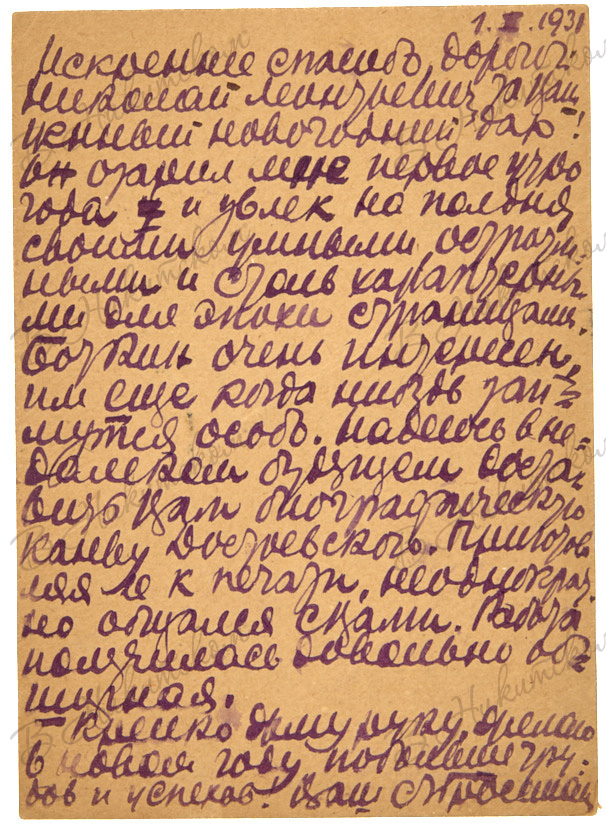 1.I.1931
Искреннее спасибо, дорогой
Николай Леонтьевич за Ваш
ценный новогодний дар!
Он озарил мне первое утро
года и увлек на полдня
своими умными,
ными и столь характерны-
ми для эпохи страницами.
Боткин очень интересен,
им еще когда нибудь зай-
мутся особо. Надеюсь в не-
далеком будущем доста-
вить Вам биографическую
канву Достоевского. Приготов-
ляя ее к печати, неоднократ-
но общался с Вами. Работа
получилась довольно об-
ширная.
Крепко жму руку, желаю
в новом году
дов и успехов. Ваш